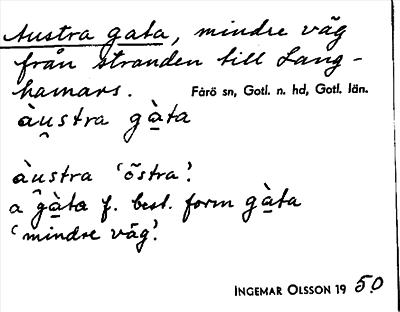 Austra gata, mindre väg
från stranden till Lang-
hamars. Fårö sn, Gotl. n. hd, Gotl. län.
àu̯stra gà̱ta
àu̯stra 'östra'.
a gà̱ta f. best. form gà̱ta
'mindre väg'.
INGEMAR OLSSON 19 50